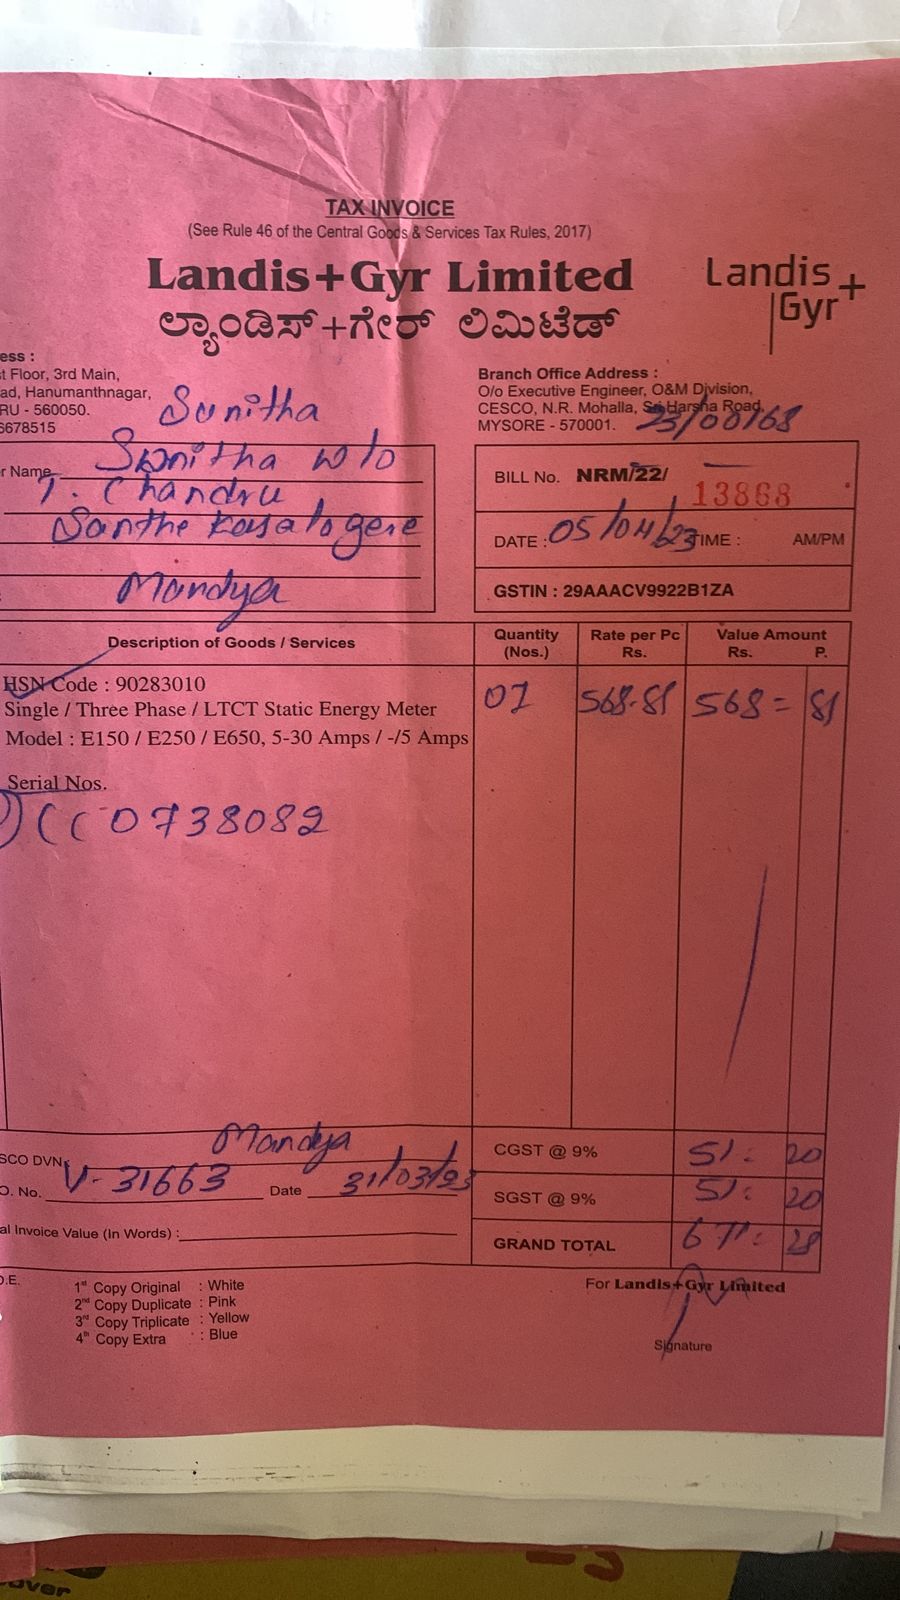 TAX INVOICE
(See Rule 46 of the Central Goods & Services Tax Rules, 2017)
Landis+Gyr Limited
ಲ್ಯಾಂಡಿಸ್+ಗೇರ್ ಲಿಮಿಟೆಡ್
Landis+
Gyr
ess :
t Floor, 3rd Main,
ad, Hanumanthnagar,
RU - 560050.
6678515
Sunitha
Branch Office Address :
O/o Executive Engineer, O&M Division,
CESCO, N.R. Mohalla, Sri Harsha Road,
MYSORE - 570001.
r Name Sunitha w/o
T. Chandru
Santhe kasalagere
Mandya
BILL No. NRM/22/ 13868
DATE : 05/04/23 TIME : AM/PM
GSTIN : 29AAACV9922B1ZA
Description of Goods / Services Quantity (Nos.) Rate per Pc Rs. Value Amount Rs. P.
HSN Code : 90283010
Single / Three Phase / LTCT Static Energy Meter 01 568.81 568= 81
Model : E150 / E250 / E650, 5-30 Amps / -/5 Amps
Serial Nos.
0738082
SCO DVN. Mandya
O. No. V-31663 Date 31/03/23
al Invoice Value (In Words) :
CGST @ 9% 51: 20
SGST @ 9% 51: 20
GRAND TOTAL 671: 28
O.E.
1st Copy Original : White
2nd Copy Duplicate : Pink
3rd Copy Triplicate : Yellow
4th Copy Extra : Blue
For Landis+Gyr Limited
Signature
over